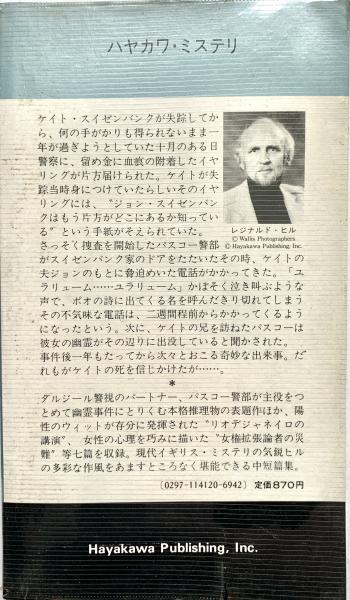 ハヤカワ・ミステリ
ケイト・スイゼンバンクが失踪してか
ら、何の手がかりも得られないまま一
年が過ぎようとしていた十月のある日
警察に、留め金に血痕の附着したイヤ
リングが片方届けられた。ケイトが失
踪当時身につけていたらしいそのイヤ
リングには、〝ジョン・スイゼンバン
クはもう片方がどこにあるか知ってい
る〟という手紙がそえられていた。
さっそく捜査を開始したパスコー警部
がスイゼンバンク家のドアをたたいたその時、ケイトの
夫ジョンのもとに脅迫めいた電話がかかってきた。「ユ
ラリューム……ユラリューム」かぼそく泣き叫ぶような
声で、ポオの詩に出てくる名を呼んだきり切れてしまう
その不気味な電話は、二週間程前からかかってくるよう
になったという。次に、ケイトの兄を訪ねたパスコーは
彼女の幽霊がその辺りに出没していると聞かされた。
事件後一年もたってから次々とおこる奇妙な出来事。だ
れもがケイトの死を信じかけたが……。
レジナルド・ヒル
© Wallis Photographers
© Hayakawa Publishing, Inc.
*
ダルジール警視のパートナー、パスコー警部が主役をつ
とめて幽霊事件にとりくむ本格推理物の表題作ほか、陽
性のウィットが存分に発揮された〝リオデジャネイロの
講演〟、女性の心理を巧みに描いた〝女権拡張論者の災
難〟等七篇を収録。現代イギリス・ミステリの気鋭ヒル
の多彩な作風をあますところなく堪能できる中短篇集。
〔0297-114120-6942〕 定価870円
Hayakawa Publishing, Inc.